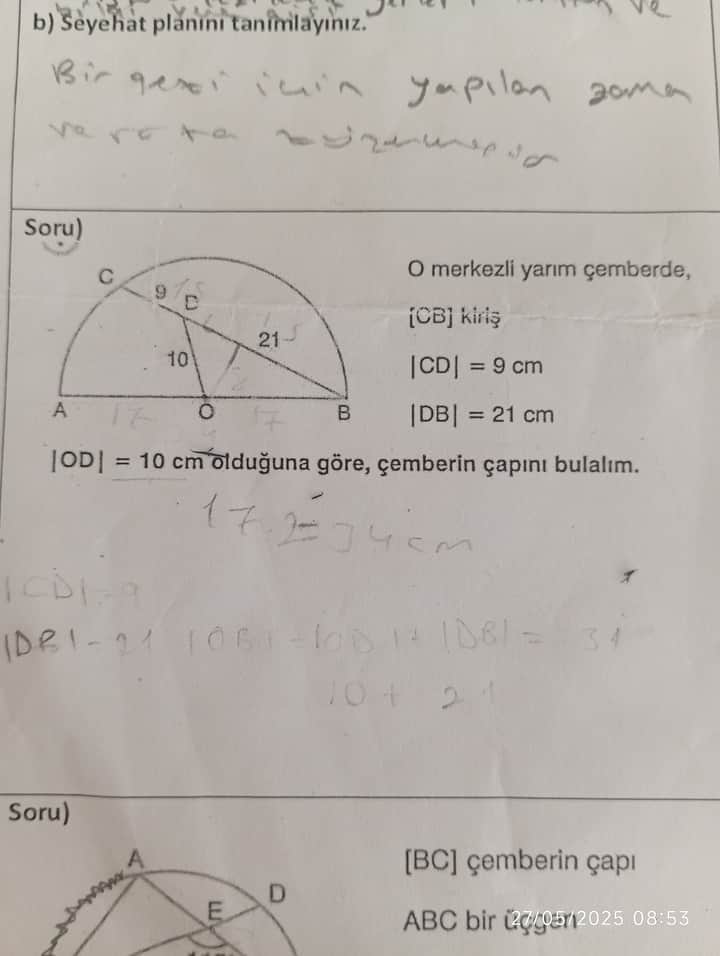 ve
b) Seyehat planını tanımlayınız.
Bir gezi için yapılan zaman
ve rota
Soru)
C
9
D
15
21
10
A
17
O
17
B
O merkezli yarım çemberde,
[CB] kiriş
|CD| = 9 cm
|DB| = 21 cm
|OD| = 10 cm olduğuna göre, çemberin çapını bulalım.
17.2=34cm
|CD|-9
|DB|-21 |OB|-|OD|+|DB|= 31
10+21
Soru)
A
D
E
[BC] çemberin çapı
ABC bir üçgen
27/05/2025 08:53